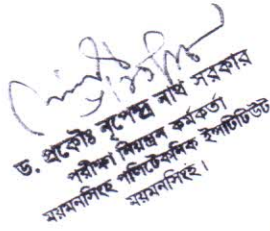 ড. প্রকৌঃ নৃপেন্দ্র নাথ সরকার
পরীক্ষা নিয়ন্ত্রন কর্মকর্তা
ময়মনসিংহ পলিটেকনিক ইন্সটিটিউট
ময়মনসিংহ।